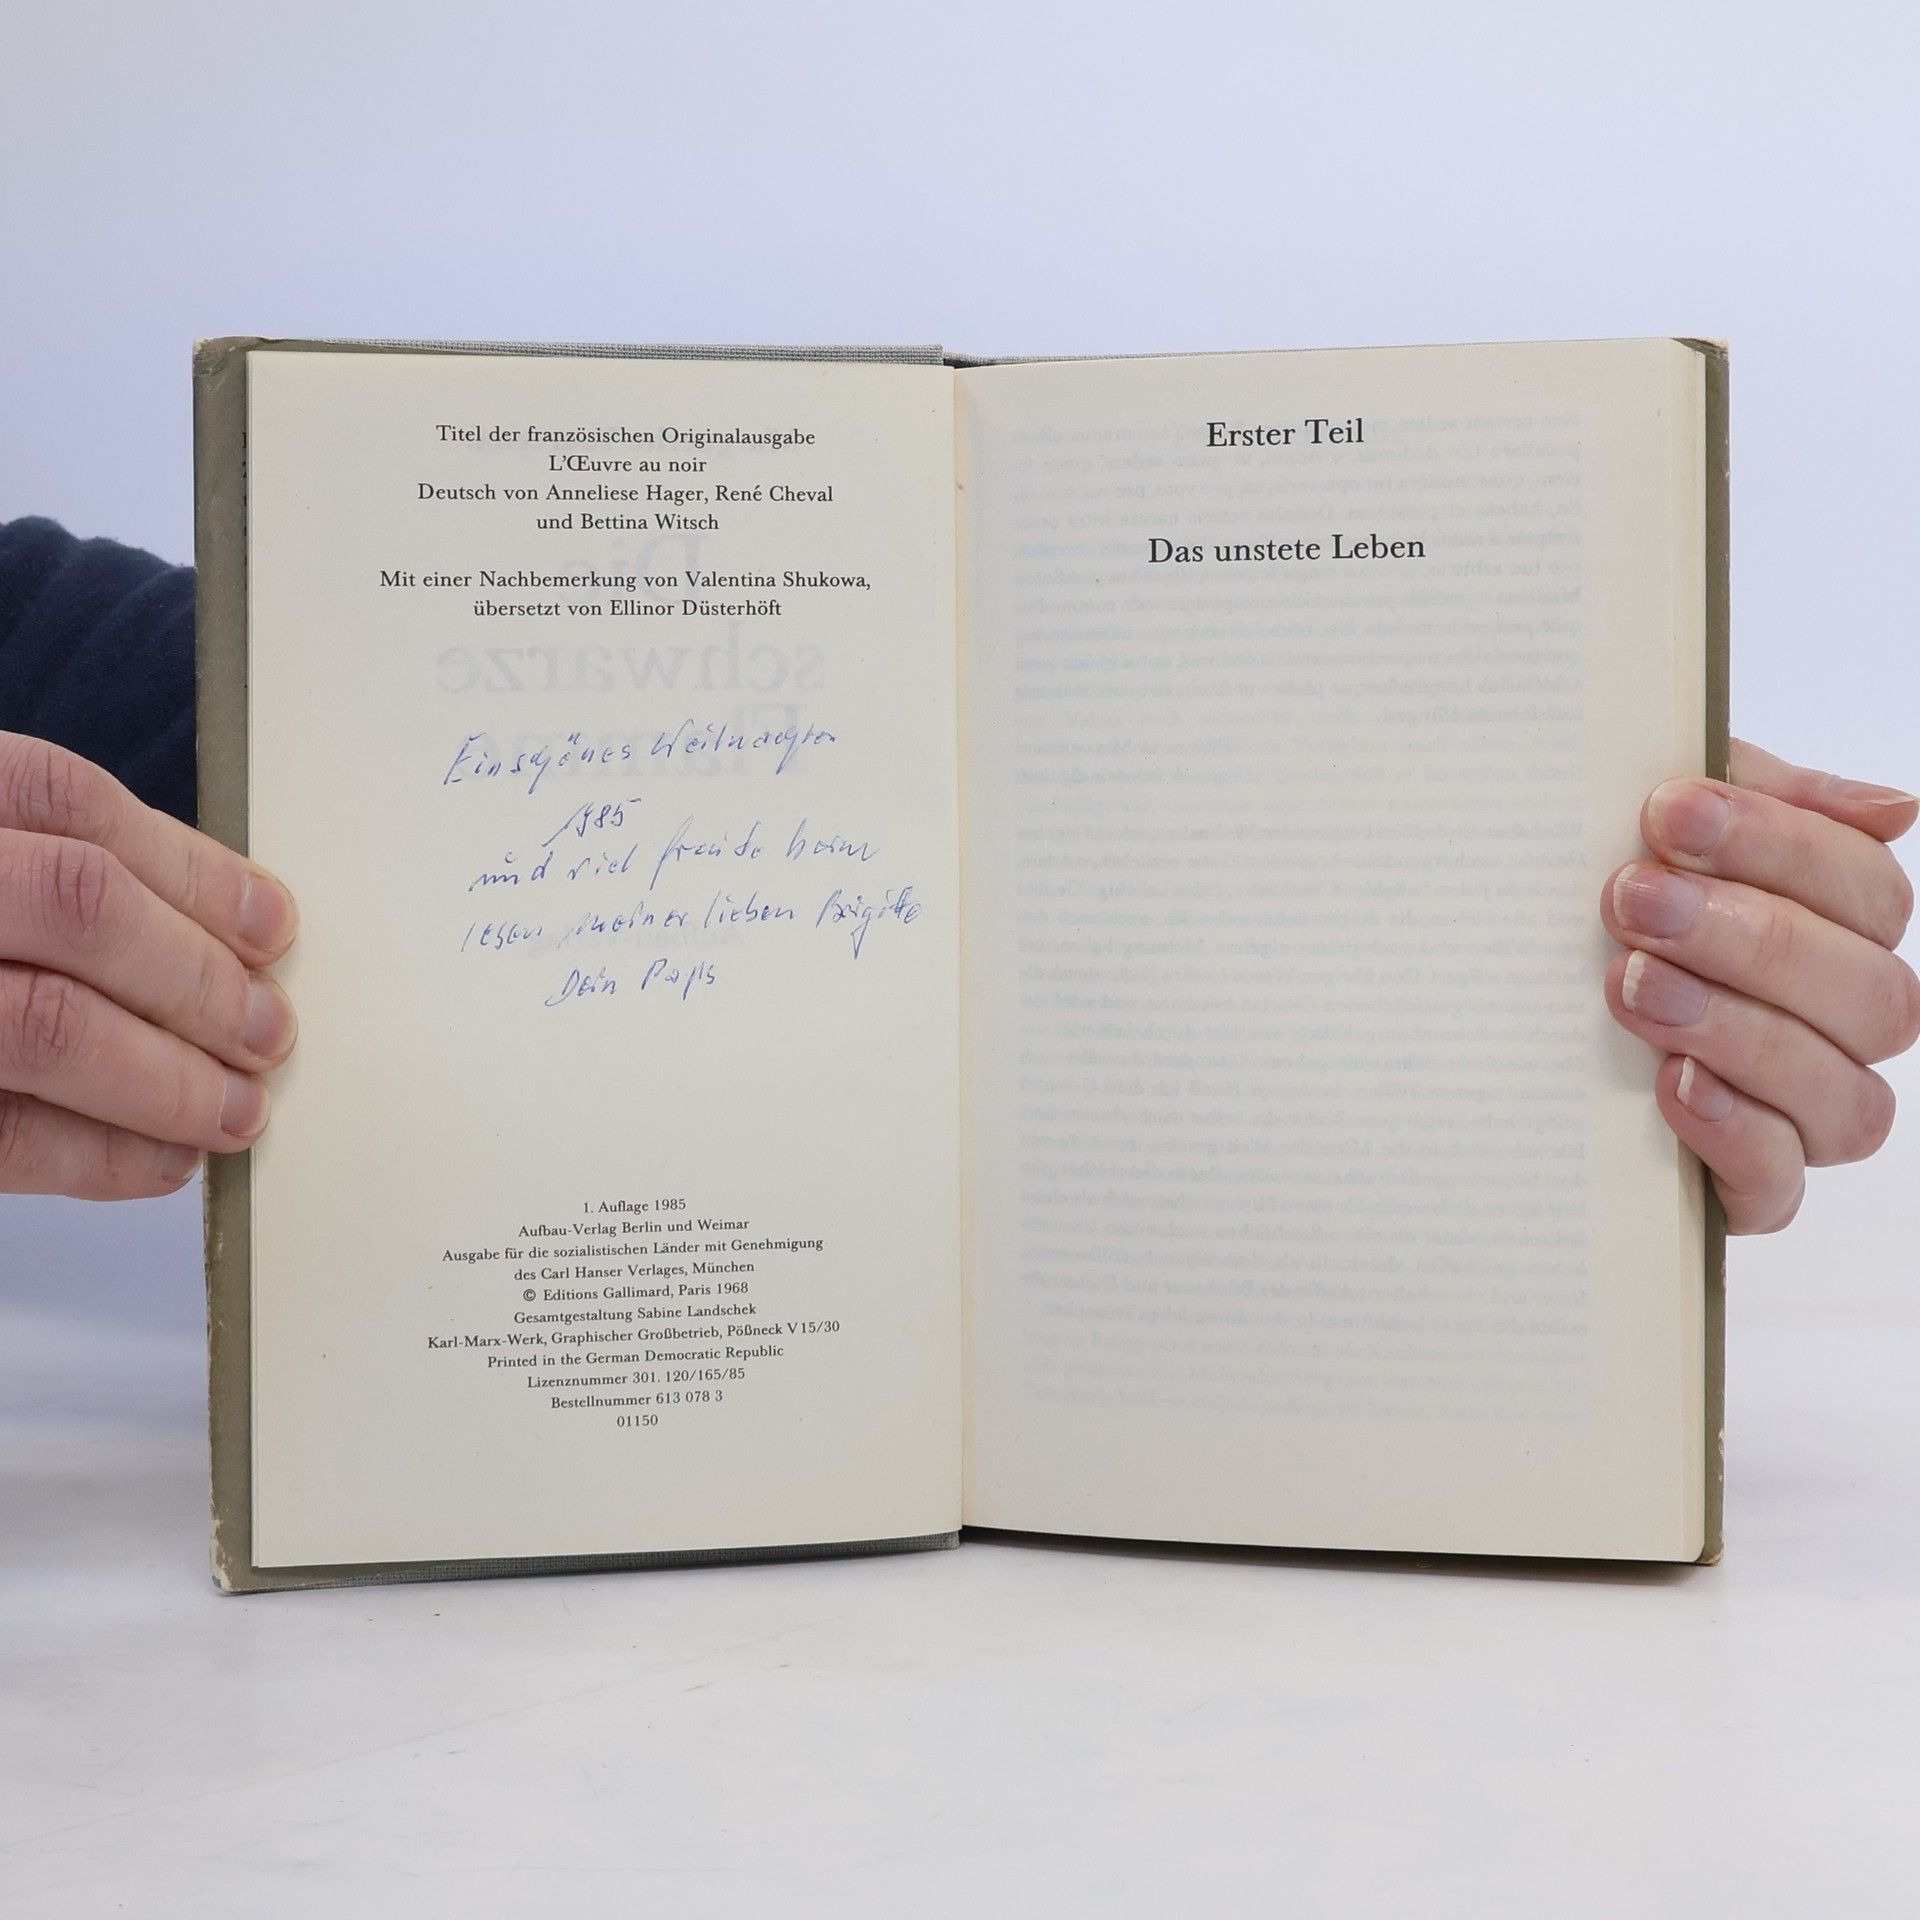 Titel der französischen Originalausgabe
L'Œuvre au noir
Deutsch von Anneliese Hager, René Cheval
und Bettina Witsch
Mit einer Nachbemerkung von Valentina Shukowa,
übersetzt von Ellinor Düsterhöft
Ein schönes Weihnachten
1985
und viel Freude beim
lesen meiner lieben Brigitte
Dein Paps
1. Auflage 1985
Aufbau-Verlag Berlin und Weimar
Ausgabe für die sozialistischen Länder mit Genehmigung
des Carl Hanser Verlages, München
© Editions Gallimard, Paris 1968
Gesamtgestaltung Sabine Landschek
Karl-Marx-Werk, Graphischer Großbetrieb, Pößneck V 15/30
Printed in the German Democratic Republic
Lizenznummer 301. 120/165/85
Bestellnummer 613 078 3
01150
Erster Teil
Das unstete Leben